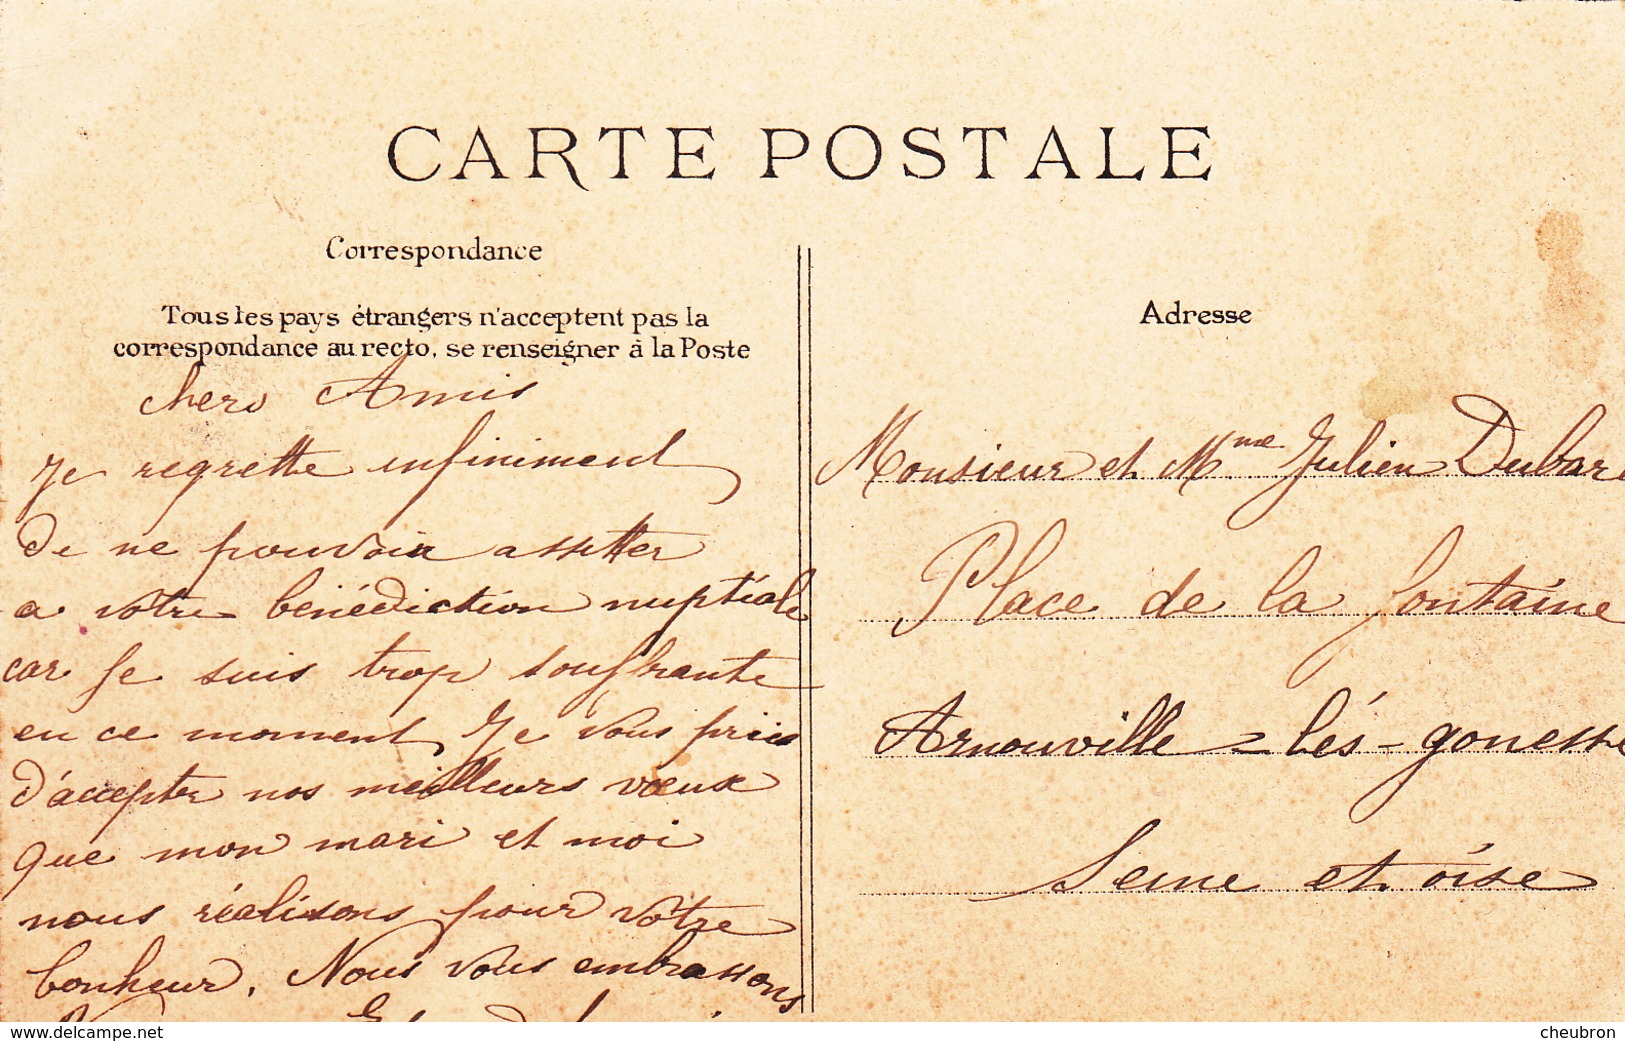 CARTE POSTALE
Correspondance
Tous les pays étrangers n'acceptent pas la
correspondance au recto, se renseigner à la Poste
chers Amis
Je regrette infiniment
de ne pouvoir assister
a votre bénédiction nuptiale
car je suis trop souffrante
en ce moment, Je vous prie
d'accepter nos meilleurs vœux
que mon mari et moi
nous réalisons pour votre
bonheur. Nous vous embrassons
Adresse
Monsieur et Mme Julien Dubar
Place de la fontaine
Arnouville = lés - gonesse
Seine et oise
www.delcampe.net
cheubron